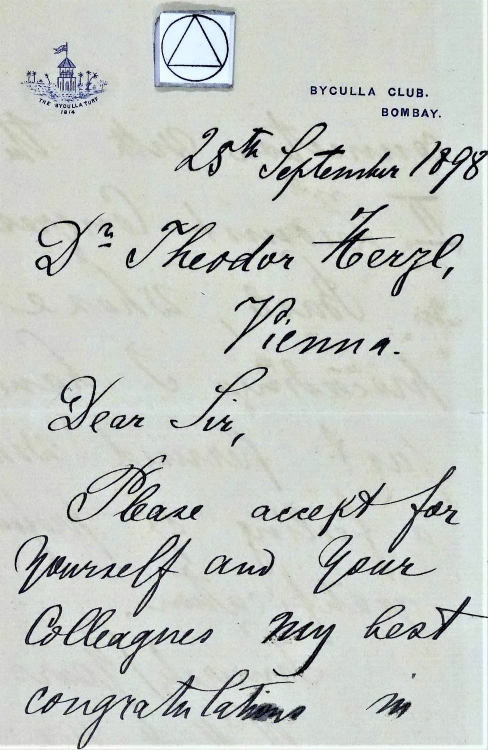 THE BYCULLA TURF
1814
BYCULLA CLUB.
BOMBAY.
25th September 1898
Dr Theodor Herzl,
Vienna.
Dear Sir,
Please accept for
Yourself and Your
Colleagues my best
congratulations in